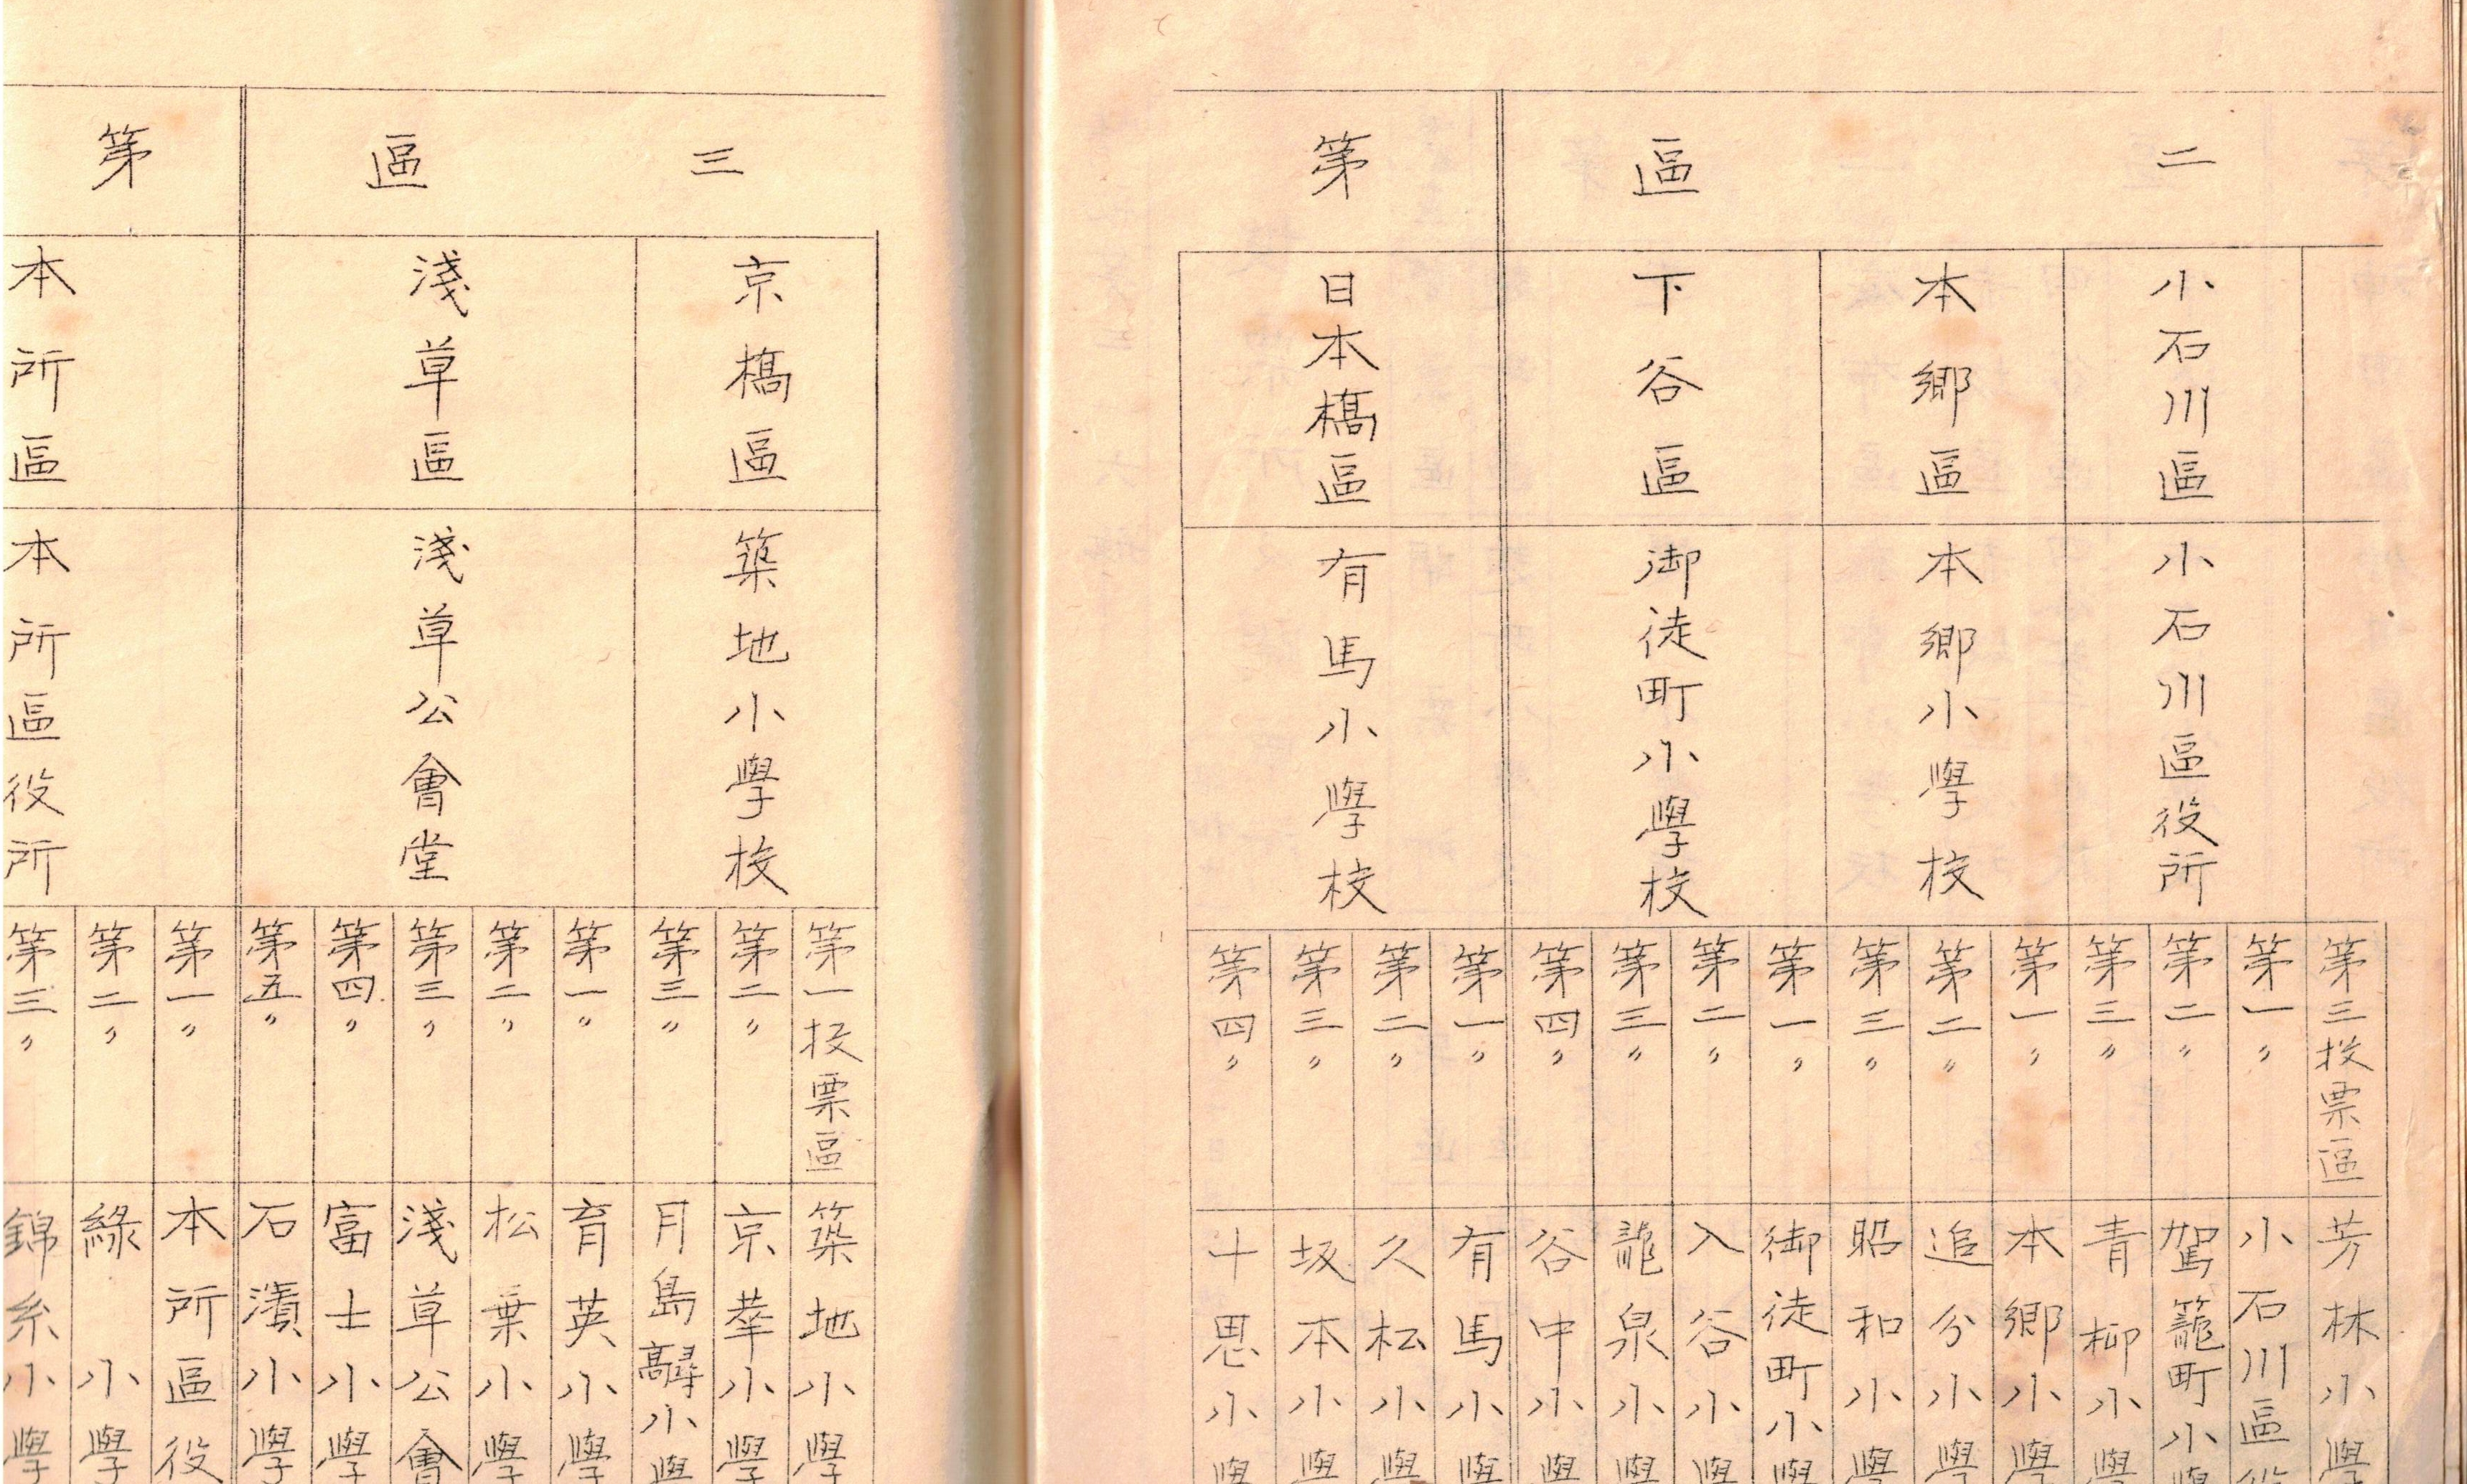 二
區
第
小石川區
本郷區
下谷區
日本橋區
小石川區役所
本郷小學校
御徒町小學校
有馬小學校
第三投票區
第一〃
第二〃
第三〃
第一〃
第二〃
第三〃
第一〃
第二〃
第三〃
第四〃
第一〃
第二〃
第三〃
第四〃
芳林小學
小石川區役
駕籠町小學
青柳小學
本郷小學
追分小學
昭和小學
御徒町小學
入谷小學
龍泉小學
谷中小學
有馬小學
久松小學
坂本小學
十思小學
三
區
第
京橋區
淺草區
本所區
築地小學校
淺草公會堂
本所區役所
第一投票區
第二〃
第三〃
第一〃
第二〃
第三〃
第四〃
第五〃
第一〃
第二〃
第三〃
築地小學
京華小學
月島 小學
育英小學
松葉小學
淺草公會
富士小學
石濱小學
本所區役
緑小學
錦糸小學